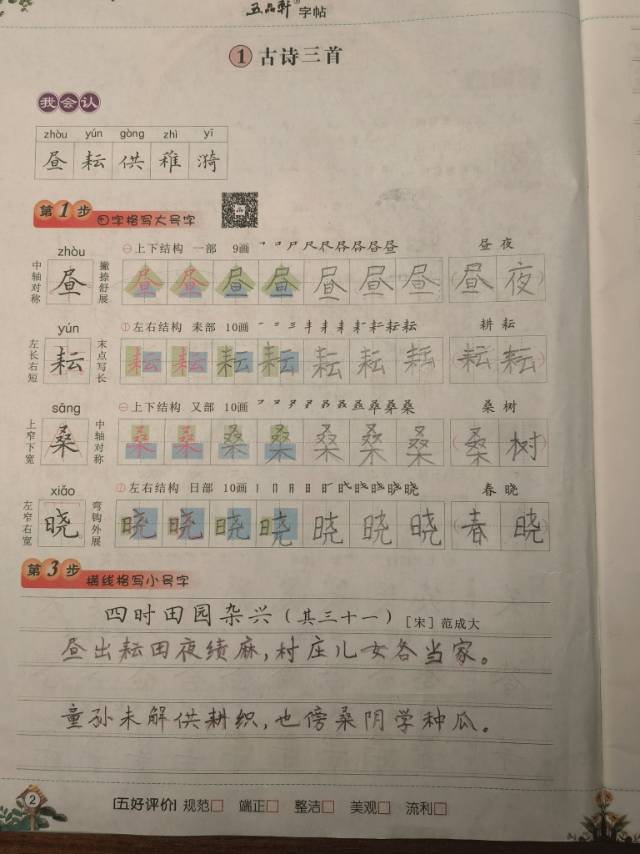 五品轩字帖
1 古诗三首
我会认
zhòu yún gòng zhì yī
昼 耘 供 稚 漪
第1步 田字格写大号字
zhòu 上下结构 一部 9画 昼夜
中轴对称 昼 撇捺舒展 昼 昼 昼 昼 昼 昼 昼 (昼 夜)
yún 左右结构 耒部 10画 耕耘
左长右短 耘 末点写长 耘 耘 耘 耘 耘 耘 耘 (耘 耘)
sāng 上下结构 又部 10画 桑树
上窄下宽 桑 中轴对称 桑 桑 桑 桑 桑 桑 桑 (桑 树)
xiǎo 左右结构 日部 10画 春晓
左窄右宽 晓 弯钩外展 晓 晓 晓 晓 晓 晓 晓 (春 晓)
第3步 横线格写小号字
四时田园杂兴(其三十一)[宋]范成大
昼出耘田夜绩麻,村庄儿女各当家。
童孙未解供耕织,也傍桑阴学种瓜。
2 [五好评价] 规范□ 端正□ 整洁□ 美观□ 流利□